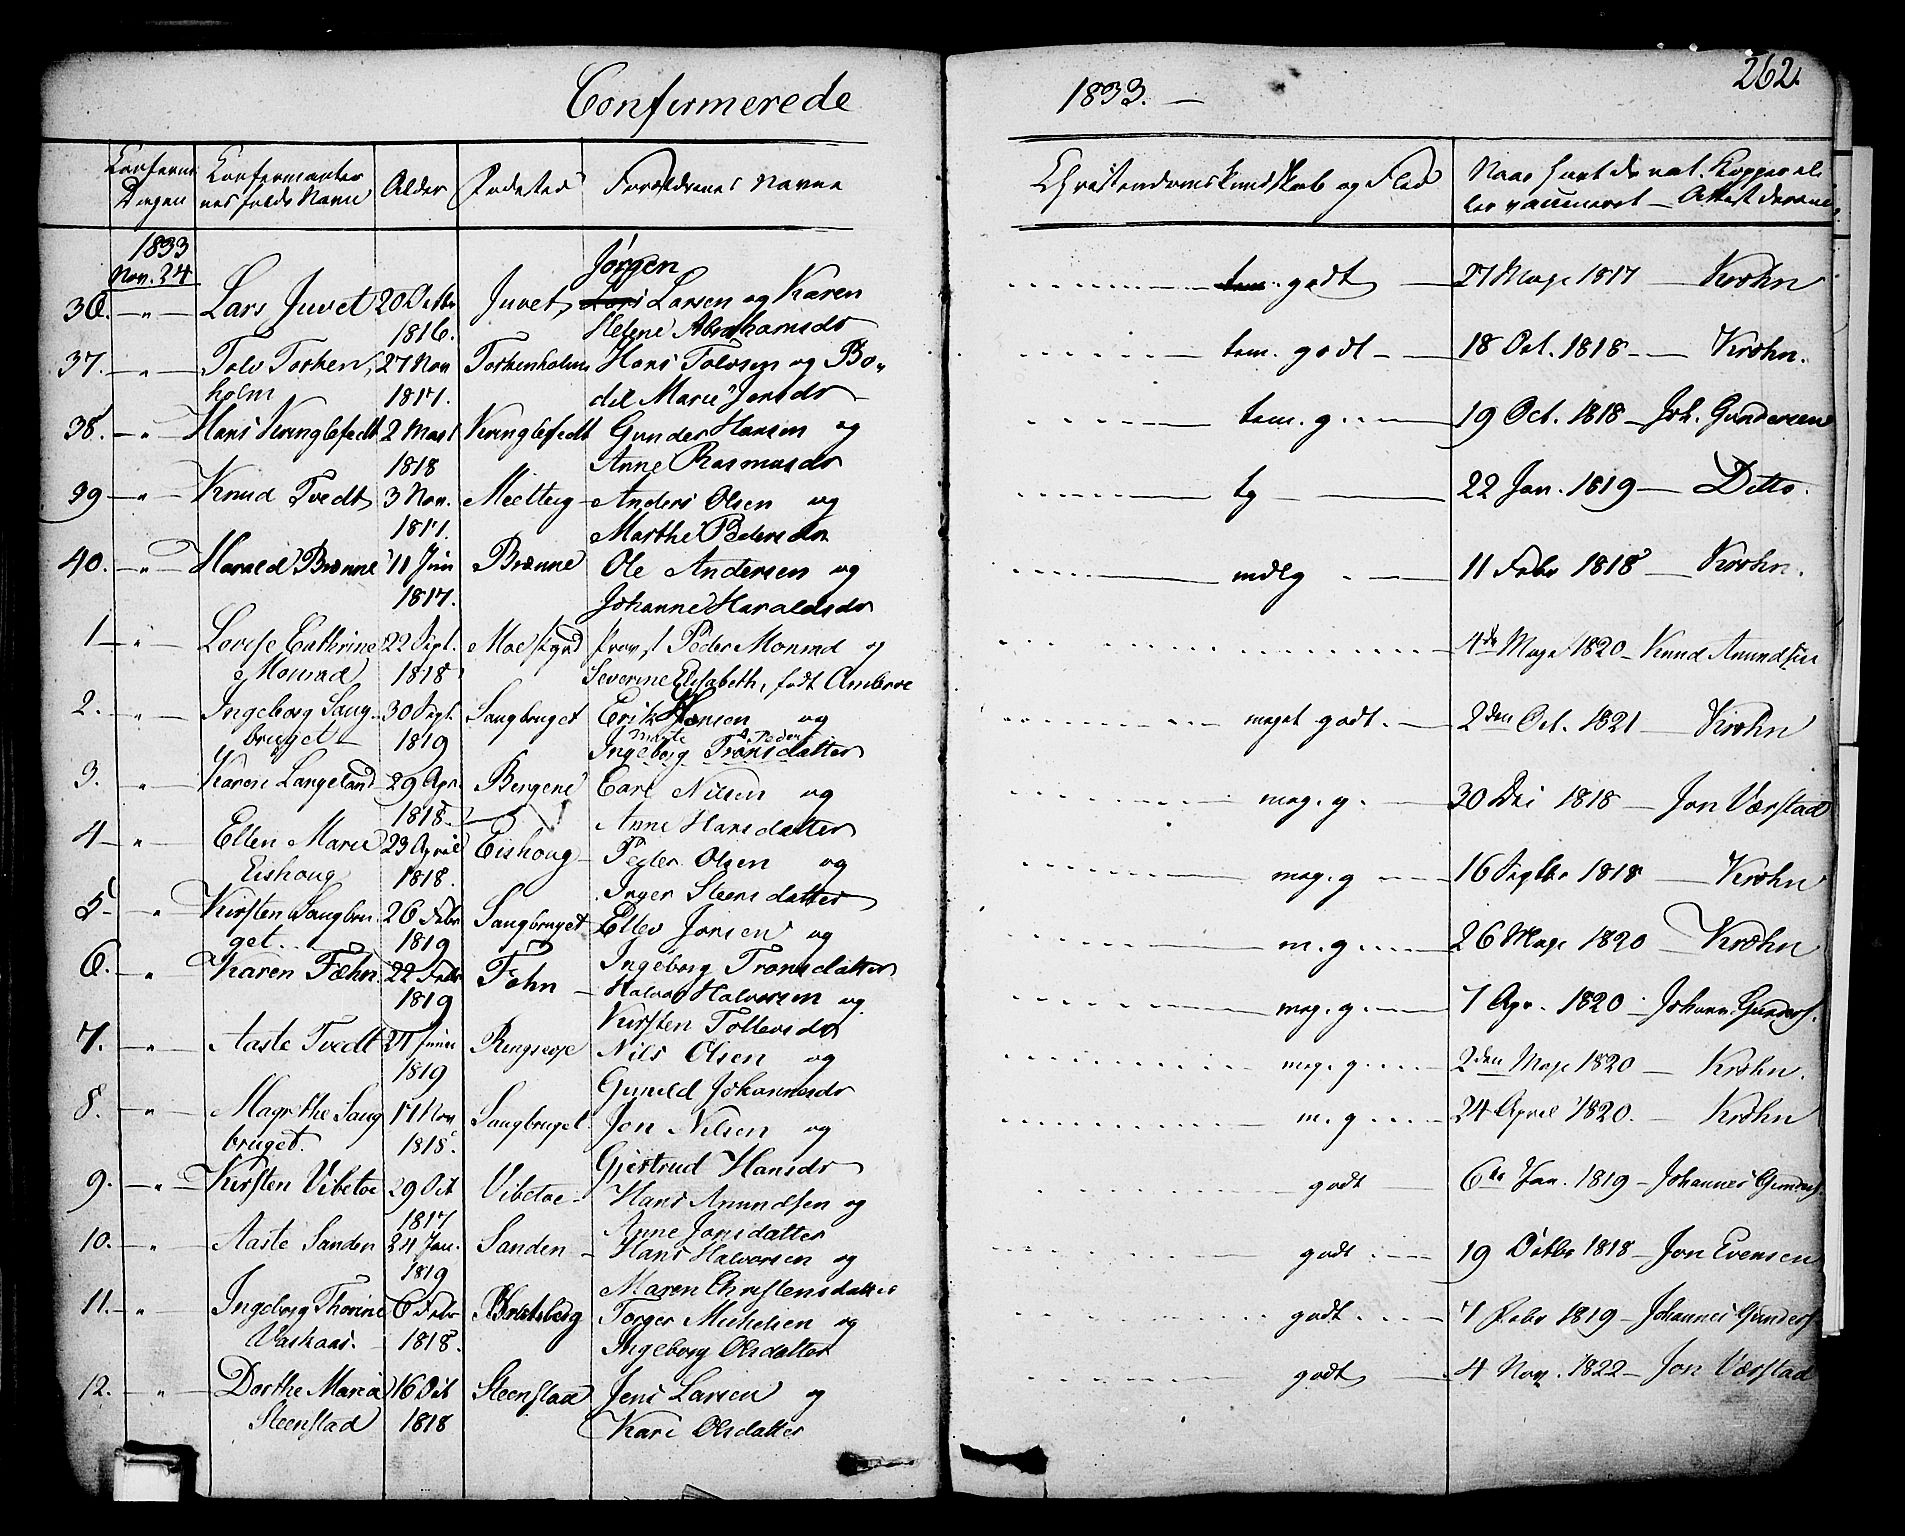 Confirmerede 1833. — 262.
Confirm: Dagen | Confirmanternes fulde Navn | Alder | Fødested | Forældrenes Navne | Christendomskundskab og Flid | Naar havt de nat. Kopper eller vaccineret — Attest derom
1833
Nov. 24
36. — " — Lars Juvet | 20 Octbr 1816. | Juvet, | Jørgen Larsen og Karen Helene Abrahamsdr | godt — | 27 Maji 1817 — Krohn
37. — " — Tolv Torkenholm | 27 Nov 1817. | Torkenholm | Hans Tolvsen og Bodil Marie Jensdr | tem. godt — | 18 Oct. 1818 — Krohn.
38. — " — Hans Kringlefedt | 2 Mart 1818 | Kringlefedt | Gunder Hansen og Anne Rasmusdr | tem. g. — | 19 Oct. 1818 — Joh. Gundersen
39 — " — Knud Tvedt | 3 Nov. 1817. | Melteig | Anders Olsen og Marthe Pedersdr | tg — | 22 Jan. 1819 — Ditto.
40. — " — Harald Brænne | 11 Juni 1817. | Brænne | Ole Andersen og Johanne Haraldsdr | mdlg — | 11 Febr 1818 — Krohn.
1 — " — Lovise Cathrine Monrad | 22 Sept. 1818 | | Provst Peder Monrad og Severine Elisabeth, født | 4de Maji 1820 — Knud Amundsen
2. — " — Ingeborg Saugbruget — | 30 Sept. 1819 | Saugbruget | Erik Hansen og Ingeborg Tronsdatter | meget godt. — | 2den Oct. 1821 — Krohn
3. — " — Karen Langeland | 29 Apr. 1818 — | Bergene | Carl Nilsen og Anne Hansdatter | meg. g. — | 30 Dec 1818 — Jon Værstad
4 — " — Ellen Marie Eishoug | 23 April 1818. | Eishoug — | Peder Olsen og Inger Steensdatter | meg. g — | 16 Septbr 1818 — Krohn
5 — " — Kirsten Saugbruget. | 26 Febr 1819 | Saugbruget | Ellev Jonsen og Ingeborg Tronsdatter | m. g. | 26 Maji 1820 — Krohn
6. — " — Karen Fæhn | 22 Febr 1819 | Fæhn — | Halvor Halvorsen og Kirsten Tollevsdr | meg. g. | 7 Apr. 1820 — Johann. Gunders.
7. — " — Aaste Tvedt | 27 Juni 1819 | | Nils Olsen og Gunild Johannesdr | meg. g. | 2den Maji 1820 — Krohn.
8. — " — Magrethe Saugbruget. | 17 Nov 1818. | Saugbruget | Jon Nilsen og Gjertrud Hansdr | m. g. | 24 April 1820. — Krohn
9. — " — Kirsten Vibetoe | 29 Oct 1817 | Vibetoe — | Hans Amundsen og Anne Jonsdatter | godt — | 6te Jan. 1819 — Johannes Gunders.
10. — " — Aaste Sanden | 24 Jan. 1819 | Sanden — | Hans Halvorsen og Maren Christensdatter | godt. — | 19 Octbr 1818 — Jon Evensen
11. — " — Ingeborg Thorine Vaskaas. — | 6 Febr 1818. | Bratsberg | Torger Michelsen og Ingeborg Olsdatter | godt. — | 7 Febr 1819 — Johannes Gunders.
12. — " — Dorthe Maria Steenstad | 16 Oct 1818 | Steenstad | Jens Larsen og Kari Olsdatter | godt — | 4 Nov. 1822 — Jon Værstad